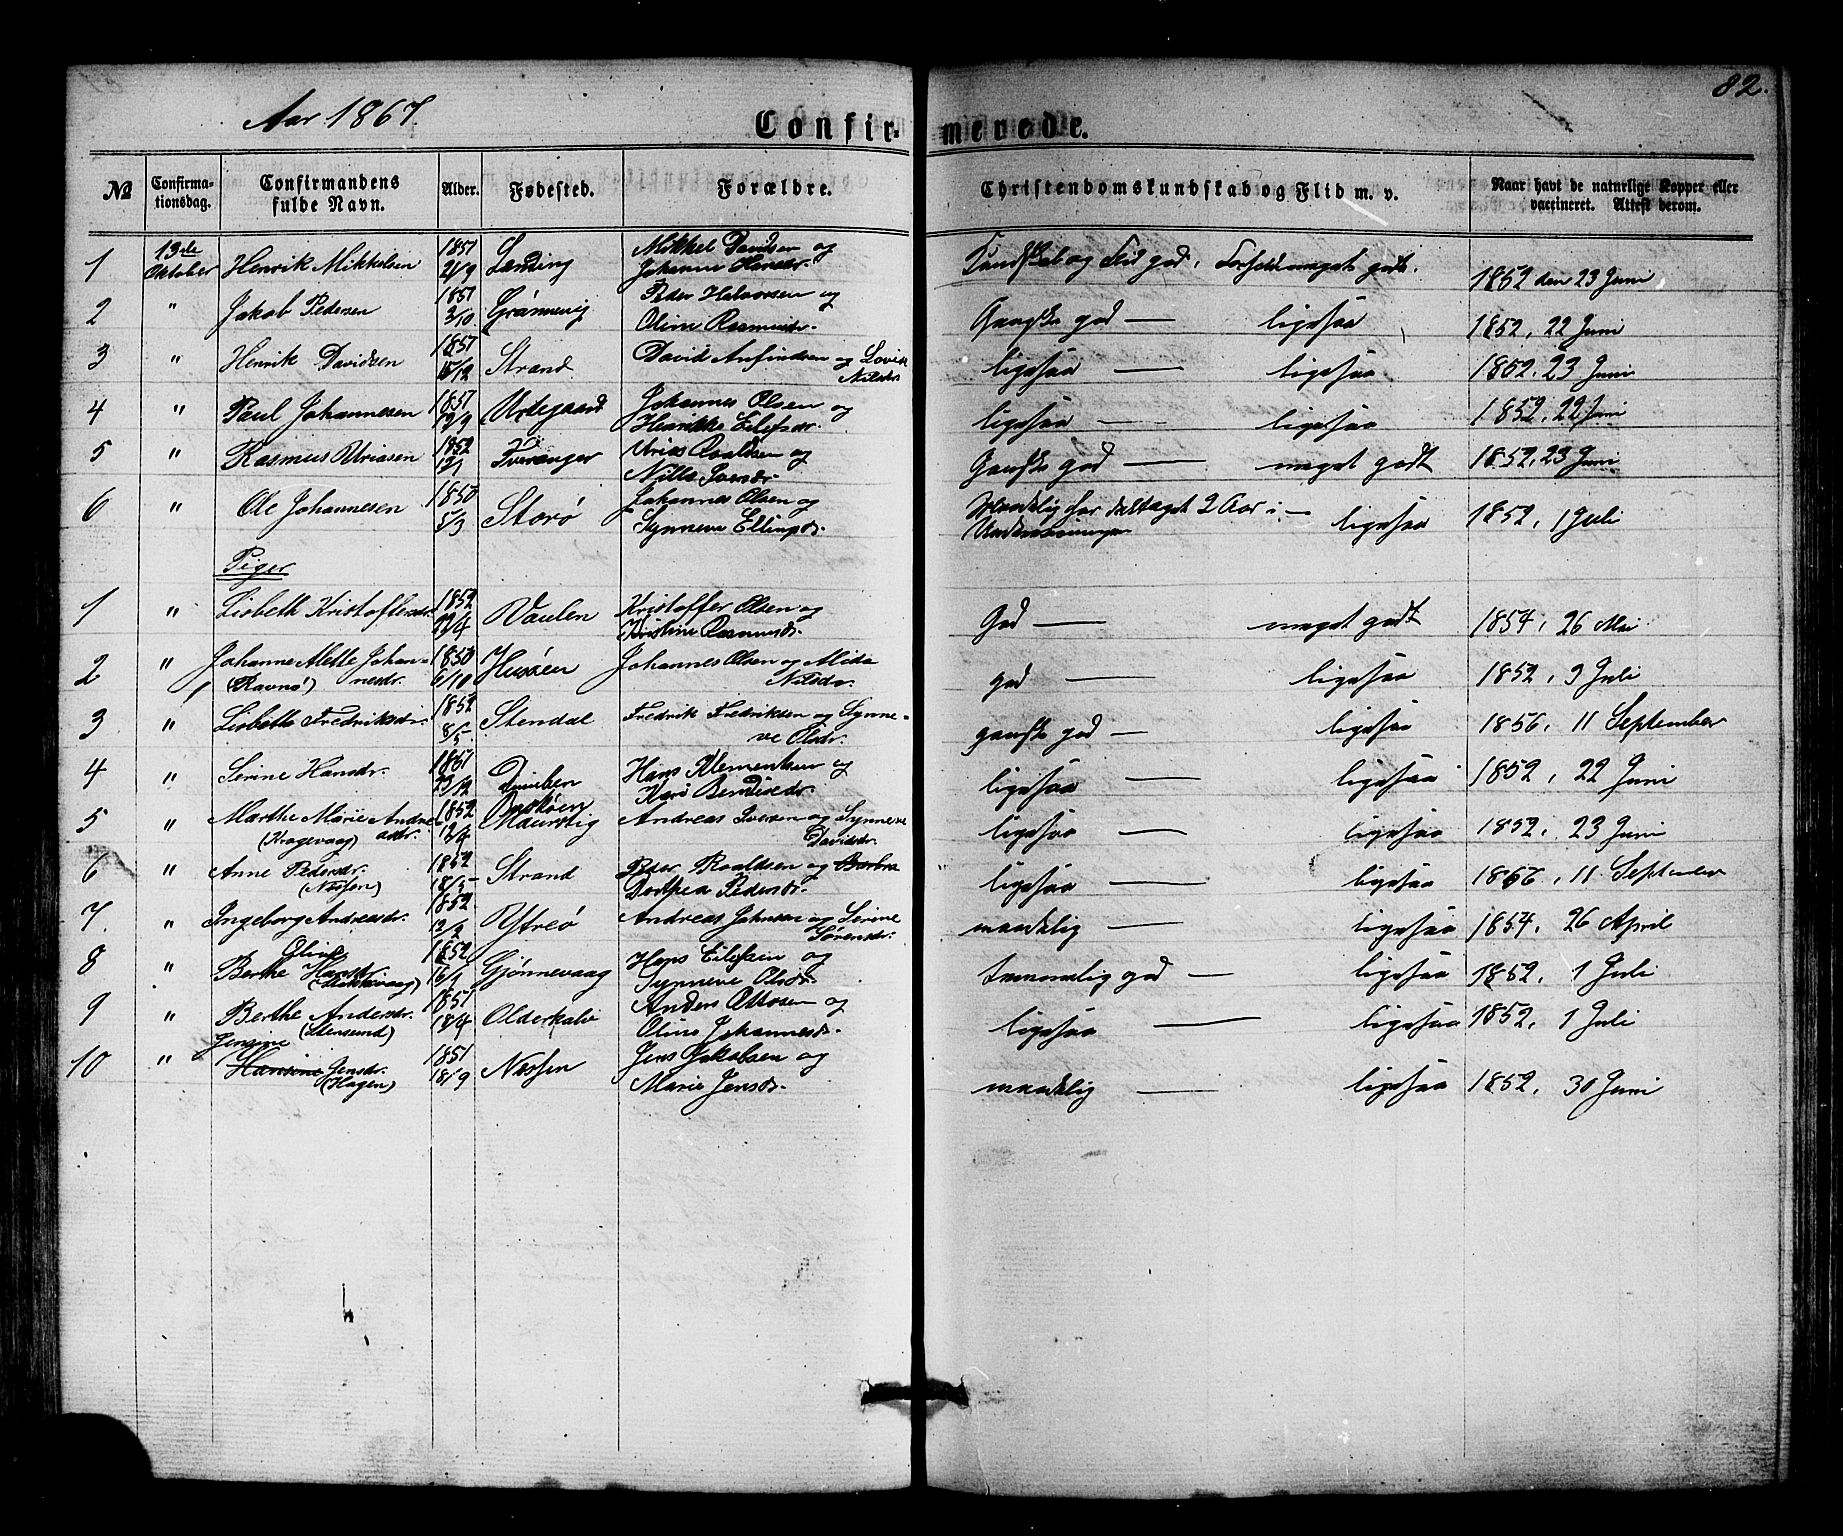 82.
Aar 1867.
Confir- merede.
№ Confirma-tionsdag. Confirmandens fulde Navn. Alder. Fødested. Forældre. Christendomskundskab og Flid m. v. Naar havt de naturlige Kopper eller vaccineret. Attest derom.
1 13de Oktober Henrik Mikkelsen 1851 21/9 Landing Mikkel Davidsen og Johanne Hansdr. Kundskab og Flid god, Forhold meget godt. 1852 den 23 Juni
2 " Jakob Pedersen 1851 3/10 Grønnevig Peder Halvorsen og Oline Rasmusdr. Ganske god — ligesaa 1852, 22 Juni
3 " Henrik Davidsen 1851 15/12 Strand David Anfindsen og Lovise Nilsdr. ligesaa — ligesaa 1852, 23 Juni
4 " Paul Johannesen 1851 12/9 Urtegaard Johannes Olsen og Henrikke Eilefsdr. ligesaa — ligesaa 1852, 22 Juni
5 " Rasmus Uriasen 1852 12/1 Tveranger Urias Roaldsen og Nille Iversdr. Ganske god — meget godt 1852, 23 Juni
6 " Ole Johannesen 1850 5/3 Storø Johannes Olsen og Synneve Ellingsdr. Maadelig har deltaget 2 Aar i Underviisningen — ligesaa 1852, 1 Juli
Piger
1 " Lisbeth Kristoffersdr. 1852 22/4 Vaulen Kristoffer Olsen og Kristine Rasmusdr. God — meget godt 1854, 26 Mai
2 " Johanne Mette Johannesdr. (Ravnø) 1850 6/10 Husøen Johannes Olsen og Alida Nilsdr. god — ligesaa 1852, 9 Juli
3 " Lisbeth Fredriksdr. 1852 8/5 Stendal Fredrik Fredriksen og Synneve Olsdr. ganske god — ligesaa 1856, 11 September
4 " Serine Hansdr. 1851 23/12 Hans Klementsen og Kari ligesaa — ligesaa 1852, 22 Juni
5 " Marthe Marie Andreasdr. (Kragevaag) 1852 12/4 Buskøen Maurstig Andreas Iversen og Synneve Davidsdr. ligesaa — ligesaa 1852, 23 Juni
6 " Anne Pedersdr. (Nessen) 1852 18/5 Strand Peder Roaldsen og Barbra Dorthea Pedersdr. ligesaa — ligesaa 1856, 11 September
7. " Ingeborg Andreasdr. 1852 12/2 Ystreø Andreas Johnsen og Serine Sørensdr. maadelig — ligesaa 1854, 26 April
8 " Berthe Oline Hansdr. (Stokkevaag) 1852 16/1 Gjønnevaag Hans Eilefsen og Synneve Olsdr. temmelig god — ligesaa 1852, 1 Juli
9 " Berthe Andersdr. (Stensund) 1851 18/4 Olderkalv Anders Ottosen og Oline Johannesdr. ligesaa — ligesaa 1852, 1 Juli
10 " Jensine Hansine Jensdr. (Hagen) 1851 18/9 Nessen Jens Jakobsen og Marie Jensdr. maadelig — ligesaa 1852, 30 Juni